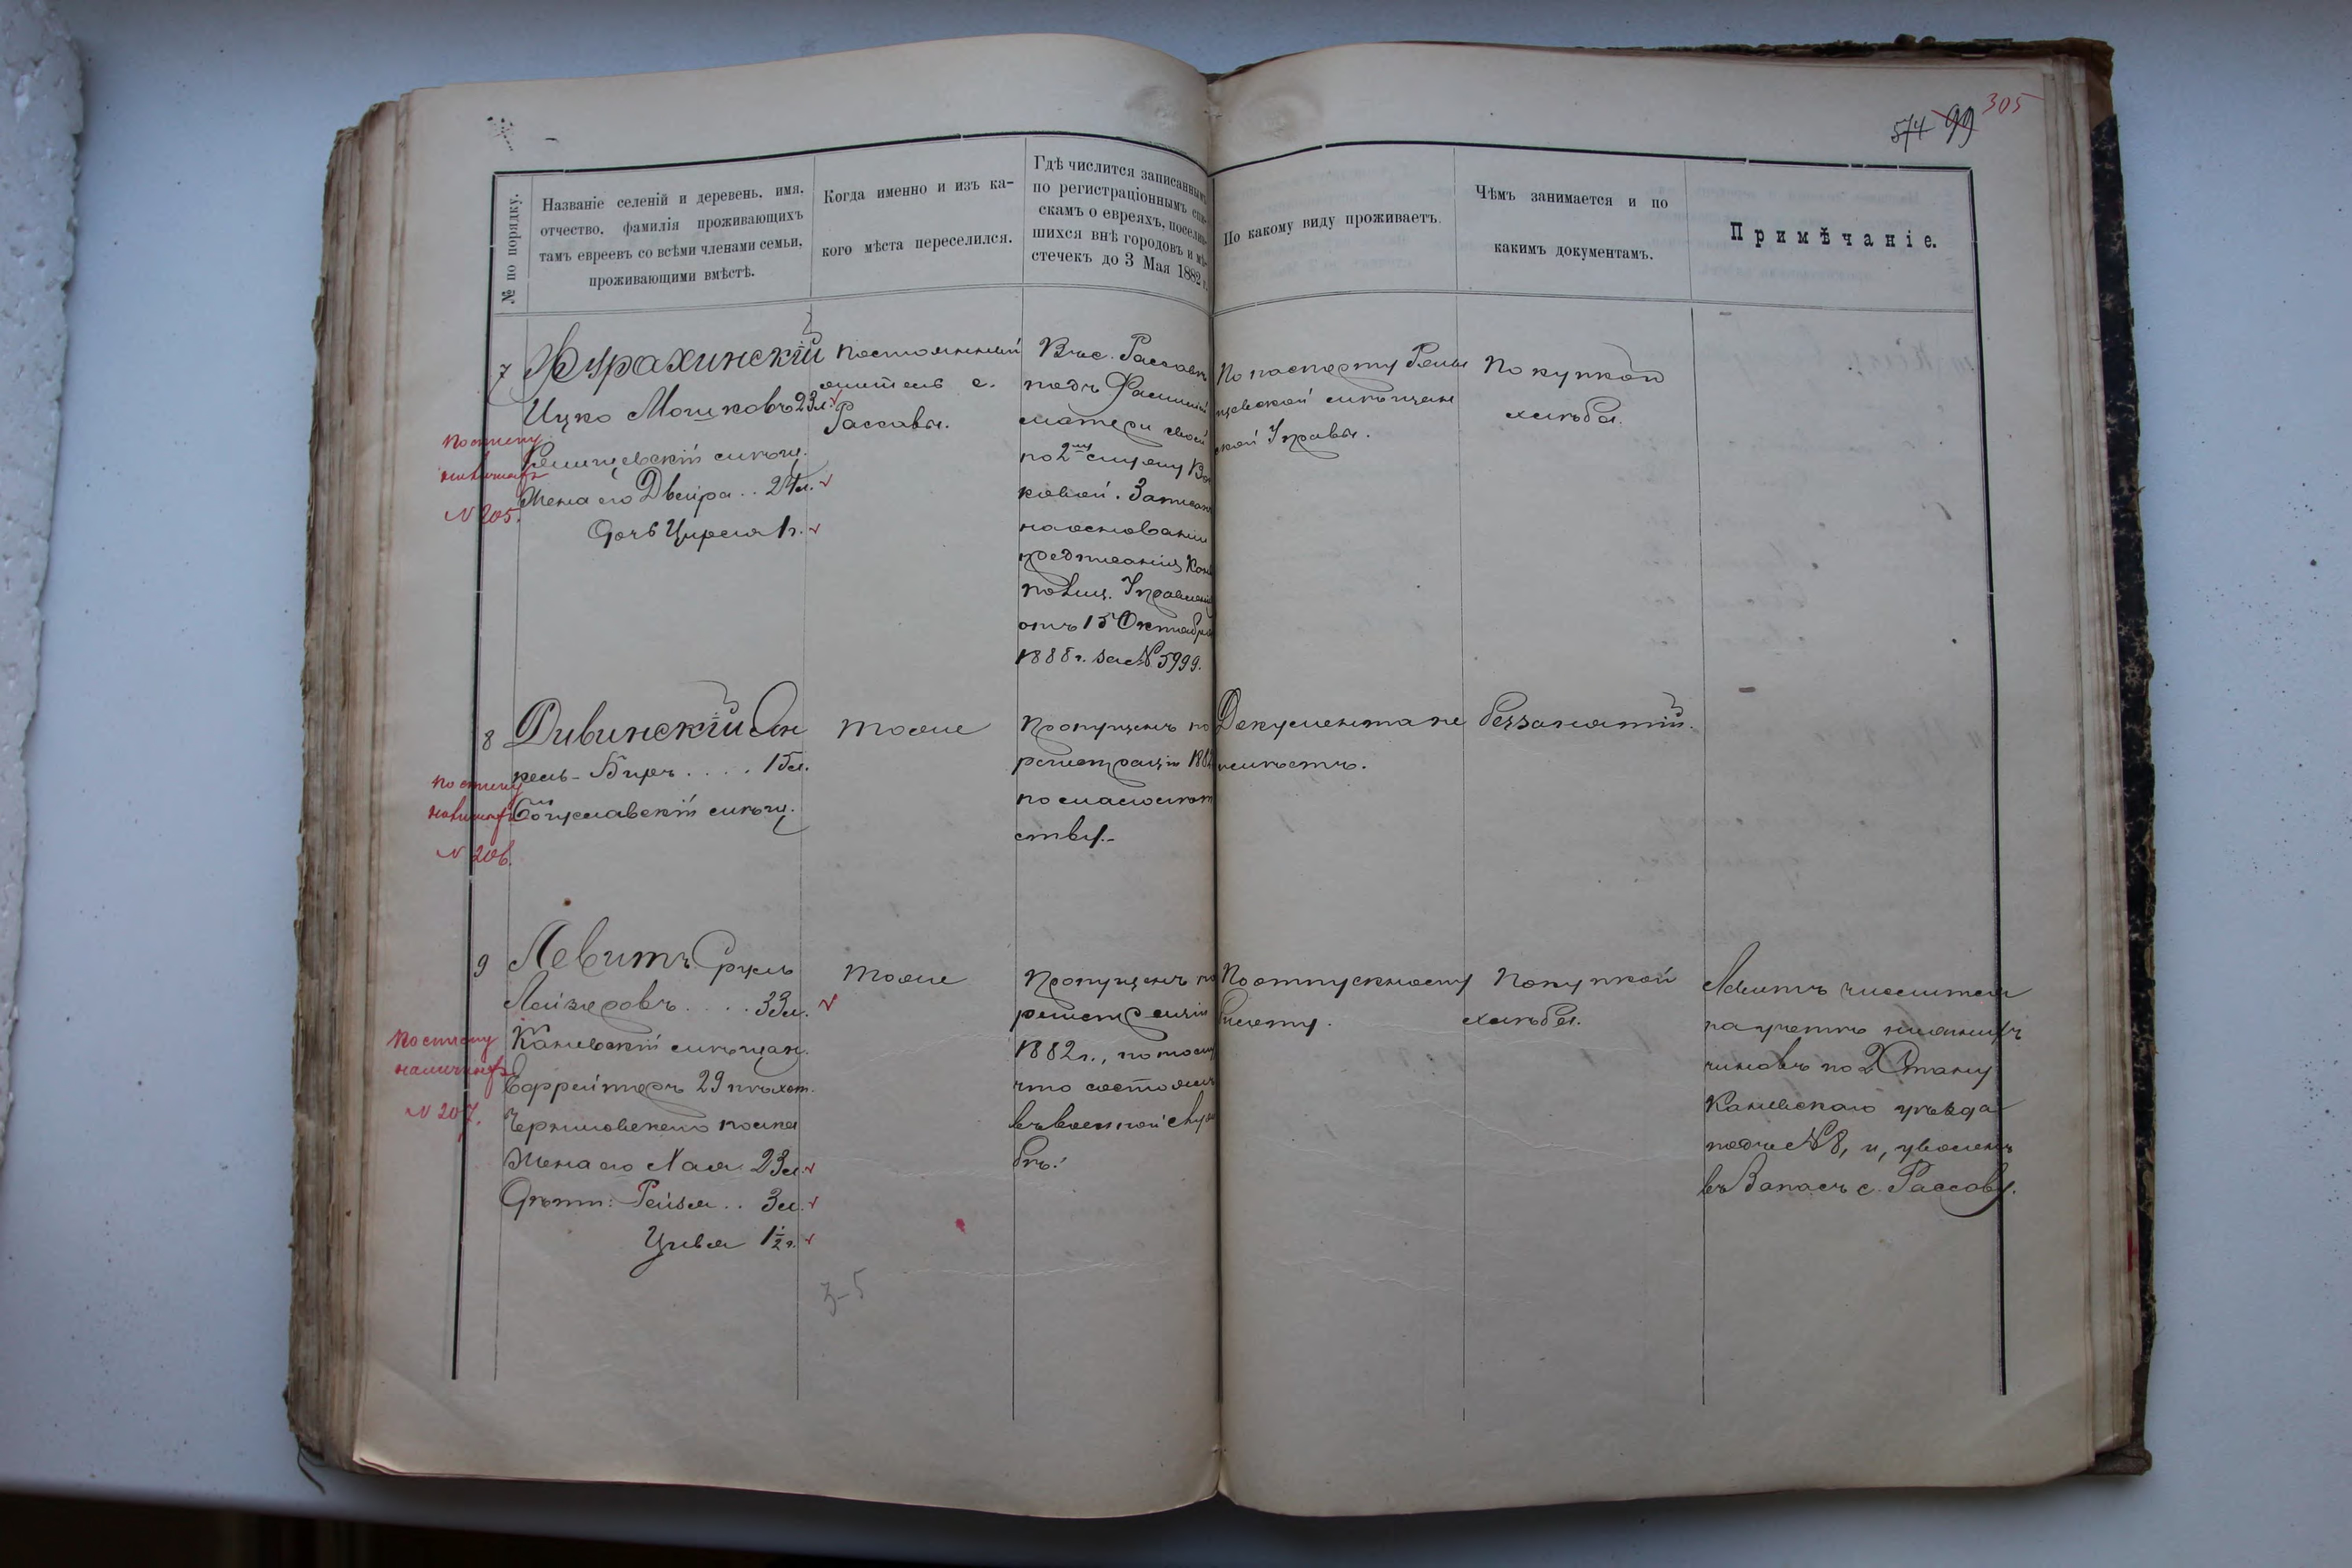 574 99 305
№ по порядку.
Названіе селеній и деревень, имя,
отчество, фамилія проживающихъ
тамъ евреевъ со всѣми членами семьи,
проживающими вмѣстѣ.
Когда именно и изъ ка-
кого мѣста переселился.
Гдѣ числится записаннымъ
по регистраціоннымъ спи-
скамъ о евреяхъ, поселив-
шихся внѣ городовъ и мѣ-
стечекъ до 3 Мая 1882 г.
По какому виду проживаетъ.
Чѣмъ занимается и по
какимъ документамъ.
Примѣчаніе.
7
Ицко Мошковъ 23 л.
мѣщ.
Жена его Двейра .. 24 л.
Дочь Цирля 1 г.
По списку
наличныхъ
N 205.
Постоянный
житель с.
Россавы.
Въ с. Россавѣ
подъ фамиліей
матери своей
по 2му списку
. Записанъ
на основаніи
предписанія
Полиц. Управленія
отъ 15 Октября
1888 г. за № 5999.
По паспорту
мѣщан
ской Управы.
Покупкой
хлѣба.
8
Дивинскій
Беръ . . . . 15 л.
Богуславскій мѣщ.
По списку
наличныхъ
N 206.
тоже
Пропущенъ по
регистраціи 188
по малолѣт
ству.
Документа не
имѣетъ.
Безъ занятій.
9
Левитъ Сруль
Лейзеровъ . . . . 33 л.
Каневскій мѣщан.
Ефрейторъ 29 пѣхот.
Черниговскаго полка
Жена его Хая 23 л.
Дѣти: Рейзя .. 3 л.
Цивья 1½ г.
По списку
наличныхъ
N 207.
тоже
Пропущенъ по
регистраціи
1882 г., потому
что состоялъ
въ военной служ
бѣ.
По отпускному
билету.
Покупкой
хлѣба.
Левитъ числится
на учетѣ нижнихъ
чиновъ по 2 Стану
Каневскаго уѣзда
подъ № 8, и, уволенъ
въ Запасъ с. Россову.
3-5